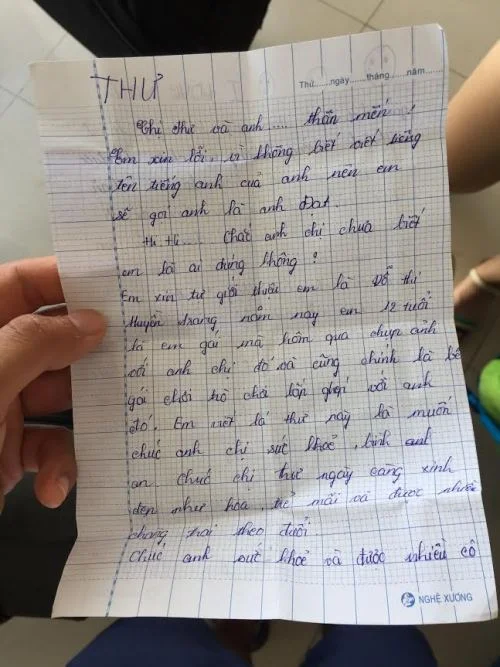 THƯ
Thứ......ngày......tháng......năm......
Chị thư và anh .... thân mến !
Em xin lỗi, vì không biết viết tiếng
tên tiếng anh của anh nên em
sẽ gọi anh là anh Đat.
Hi Hi.... Chắc anh chị chưa biết
em là ai đúng không ?
Em xin tự giới thiệu em là Đỗ thị
Huyền trang năm nay em 12 tuổi
là em gái mà hôm qua chụp ảnh
với anh chị đó và cũng chính là bé
gái chơi trò chơi lộn ghẹo với anh
đó. Em viết lá thư này là muốn
chúc anh chị sức khoẻ, bình anh
an. Chúc chị thư ngày càng xinh
đẹp như hoa, trẻ mãi và được nhiều
chàng trai theo đuổi.
Chúc anh sức khoẻ và được nhiều cô
NGHÊ XƯƠNG